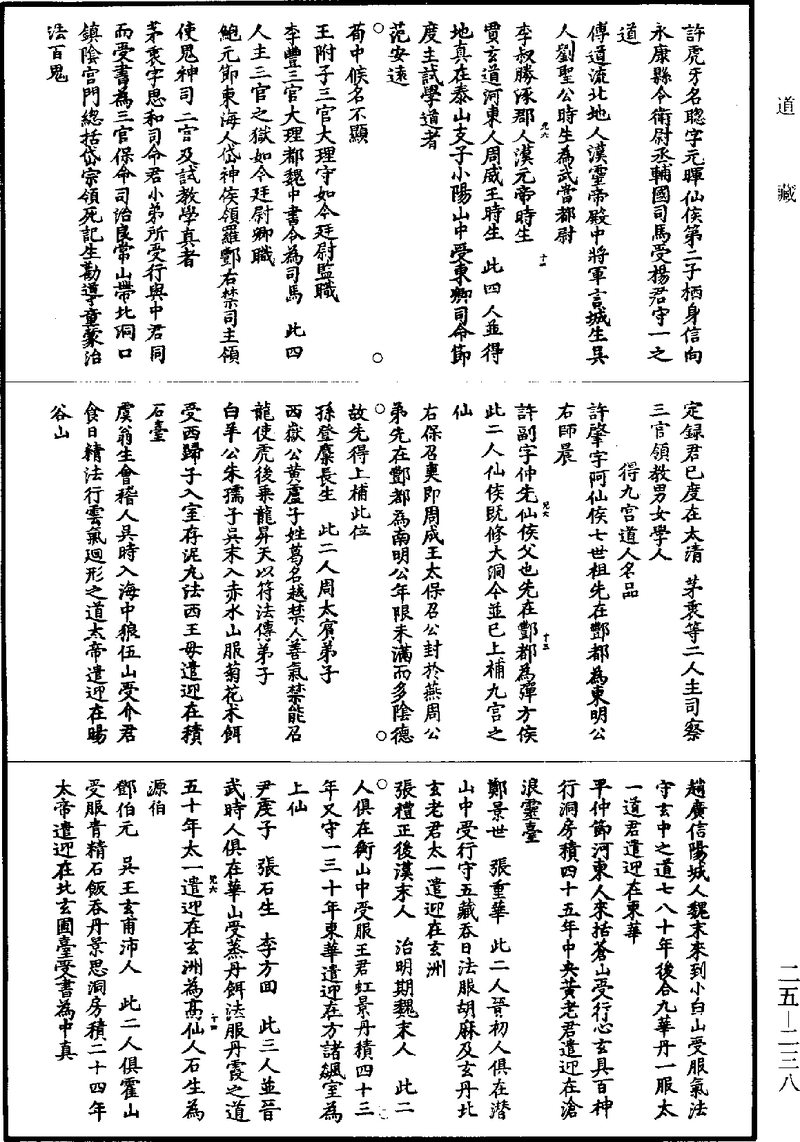 道藏
許虎牙名聦字元暉仙侯第二子栖身信向
永康縣令衛尉丞輔國司馬受楊君守一之
道
傳道流北地人漢靈帝殿中將軍言城生吳
人劉聖公時生為武當都尉
李叔勝涿郡人漢元帝時生
賈玄道河東人周威王時生 此四人並得
地真在泰山支子小陽山中受東卿司命節
度主試學道者
范安遠
荀中候名不顯
王附子三官大理守如今廷尉監職
李豐三官大理都魏中書令為司馬 此四
人主三官之獄如今廷尉卿職
鮑元節東海人岱神侯領羅酆右禁司主領
使鬼神司二宮及試教學真者
茅衷字思和司命君小弟所受行與中君同
而受書為三官保命司治良常山帶北洞口
鎮陰宮門總括岱宗領死記生勸導童蒙治
法百鬼
定録君已度在太清 茅衷等二人主司察
三官領教男女學人
得九宮道人名品
許肇字阿仙侯七世祖先在酆都為東明公
右師晨
許副字仲先仙侯父也先在酆都為彈方侯
此二人仙侯既修大洞今並已上補九宮之
仙
右保召奭即周成王太保召公封於燕周公
弟先在酆都為南明公年限未滿而多陰德
故先得上補此位
孫登麋長生 此二人周太賓弟子
西嶽公黃盧子姓葛名越禁人善氣禁能召
龍使虎後乘龍昇天以符法傳弟子
白羊公朱孺子吳末入赤水山服菊花朮餌
受西歸子入室存泥丸法西王母遣迎在積
石臺
虞翁生會稽人吳時入海中狼伍山受介君
食日精法行雲氣迴形之道太帝遣迎在暘
谷山
趙廣信陽城人魏末來到小白山受服氣法
守玄中之道七八十年後合九華丹一服太
一道君遣迎在東華
平仲節河東人來括蒼山受行心玄具百神
行洞房積四十五年中央黃老君遣迎在滄
浪靈臺
鄭景世 張重華 此二人晉初人俱在潛
山中受行守五藏吞日法服胡麻及玄丹北
玄老君太一遣迎在玄洲
張禮正後漢末人 治明期魏末人 此二
人俱在衡山中受服王君虹景丹積四十三
年又守一三十年東華遣迎在方諸飆室為
上仙
尹虔子 張石生 李方回 此三人並晉
武時人俱在華山受蒸丹餌法服丹霞之道
五十年太一遣迎在玄洲為高仙人石生為
源伯
鄧伯元 吳王玄甫沛人 此二人俱霍山
受服青精石飯吞丹景思洞房積二十四年
太帝遣迎在北玄圃臺受書為中真
二五—二三八